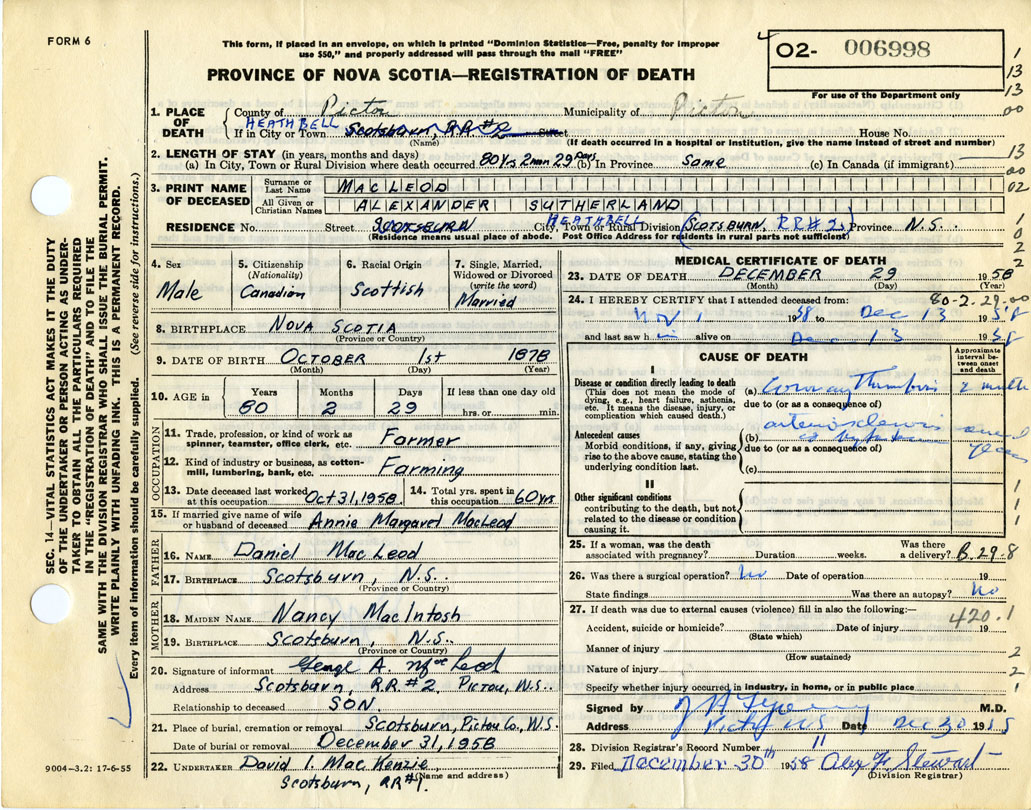 FORM 6
This form, if placed in an envelope, on which is printed "Dominion Statistics—Free, penalty for improper
use $50," and properly addressed will pass through the mail "FREE"
PROVINCE OF NOVA SCOTIA—REGISTRATION OF DEATH
O2- 006998
For use of the Department only
1. PLACE OF DEATH
County of Pictou Municipality of Pictou
HEATHBELL
If in City or Town Scotsburn, RR#2 Street House No.
(Name) (If death occurred in a hospital or institution, give the name instead of street and number)
2. LENGTH OF STAY (in years, months and days)
(a) In City, Town or Rural Division where death occurred 80 Yrs 2 mon 29 Days (b) In Province Same (c) In Canada (if immigrant)
3. PRINT NAME OF DECEASED
Surname or Last Name MACLEOD
All Given or Christian Names ALEXANDER SUTHERLAND
RESIDENCE No. Street SCOTSBURN City, Town or Rural Division HEATHBELL (SCOTSBURN, RR#2) Province N.S.
(Residence means usual place of abode. Post Office Address for residents in rural parts not sufficient)
4. Sex
Male
5. Citizenship
(Nationality)
Canadian
6. Racial Origin
Scottish
7. Single, Married,
Widowed or Divorced
(write the word)
Married
8. BIRTHPLACE NOVA SCOTIA
(Province or Country)
9. DATE OF BIRTH OCTOBER 1st 1878
(Month) (Day) (Year)
10. AGE in
Years Months Days If less than one day old
80 2 29 hrs. or min.
OCCUPATION
11. Trade, profession, or kind of work as
spinner, teamster, office clerk, etc. Farmer
12. Kind of industry or business, as cotton-
mill, lumbering, bank, etc. Farming
13. Date deceased last worked
at this occupation Oct 31, 1958.
14. Total yrs. spent in
this occupation 60 yrs.
15. If married give name of wife
or husband of deceased Annie Margaret MacLeod
FATHER
16. NAME Daniel MacLeod
17. BIRTHPLACE Scotsburn, N.S..
(Province or Country)
MOTHER
18. MAIDEN NAME Nancy MacIntosh
19. BIRTHPLACE Scotsburn, N.S..
(Province or Country)
20. Signature of informant George A. McLeod
Address Scotsburn, R.R.#2. Pictou, N.S..
Relationship to deceased SON.
21. Place of burial, cremation or removal Scotsburn, Pictou Co., N.S.
Date of burial or removal December 31, 1958
22. UNDERTAKER David I. MacKenzie
(Name and address)
Scotsburn, RR#1.
9004-3.2: 17-6-55
SEC. 14—VITAL STATISTICS ACT MAKES IT THE DUTY
OF THE UNDERTAKER OR PERSON ACTING AS UNDER-
TAKER TO OBTAIN ALL THE PARTICULARS REQUIRED
IN THE "REGISTRATION OF DEATH" AND TO FILE THE
SAME WITH THE DIVISION REGISTRAR WHO SHALL ISSUE THE BURIAL PERMIT.
WRITE PLAINLY WITH UNFADING INK. THIS IS A PERMANENT RECORD.
Every item of information should be carefully supplied. (See reverse side for instructions.)
MEDICAL CERTIFICATE OF DEATH
23. DATE OF DEATH DECEMBER 29 1958
(Month) (Day) (Year)
80-2-29-00
24. I HEREBY CERTIFY that I attended deceased from:
Nov 1 1958 to Dec 13 1958
and last saw him alive on Dec 13 1958
CAUSE OF DEATH
Approximate
interval be-
tween onset
and death
I
Disease or condition directly leading to death
(This does not mean the mode of
dying, e.g., heart failure, asthenia,
etc. It means the disease, injury, or
complication which caused death.)
(a) Coronary Thrombosis 2 month
due to (or as a consequence of)
Antecedent causes
Morbid conditions, if any, giving
rise to the above cause, stating the
underlying condition last.
(b) arteriosclerosis
due to (or as a consequence of) years
(c)
II
Other significant conditions
contributing to the death, but not
related to the disease or condition
causing it.
25. If a woman, was the death
associated with pregnancy? Duration weeks. Was there
a delivery? B.29-8
26. Was there a surgical operation? No Date of operation 19
State findings Was there an autopsy? No
27. If death was due to external causes (violence) fill in also the following:—
420.1
Accident, suicide or homicide? Date of injury 19
(State which)
Manner of injury
(How sustained)
Nature of injury
Specify whether injury occurred in industry, in home, or in public place
Signed by M.D.
Address Pictou N.S. Date Dec 30 195
28. Division Registrar's Record Number 11
29. Filed December 30th 1958 Alex F Stewart
(Division Registrar)
1
13
13
00
13
00
02
1
0
0
2
2
1
1
1
2
2
1